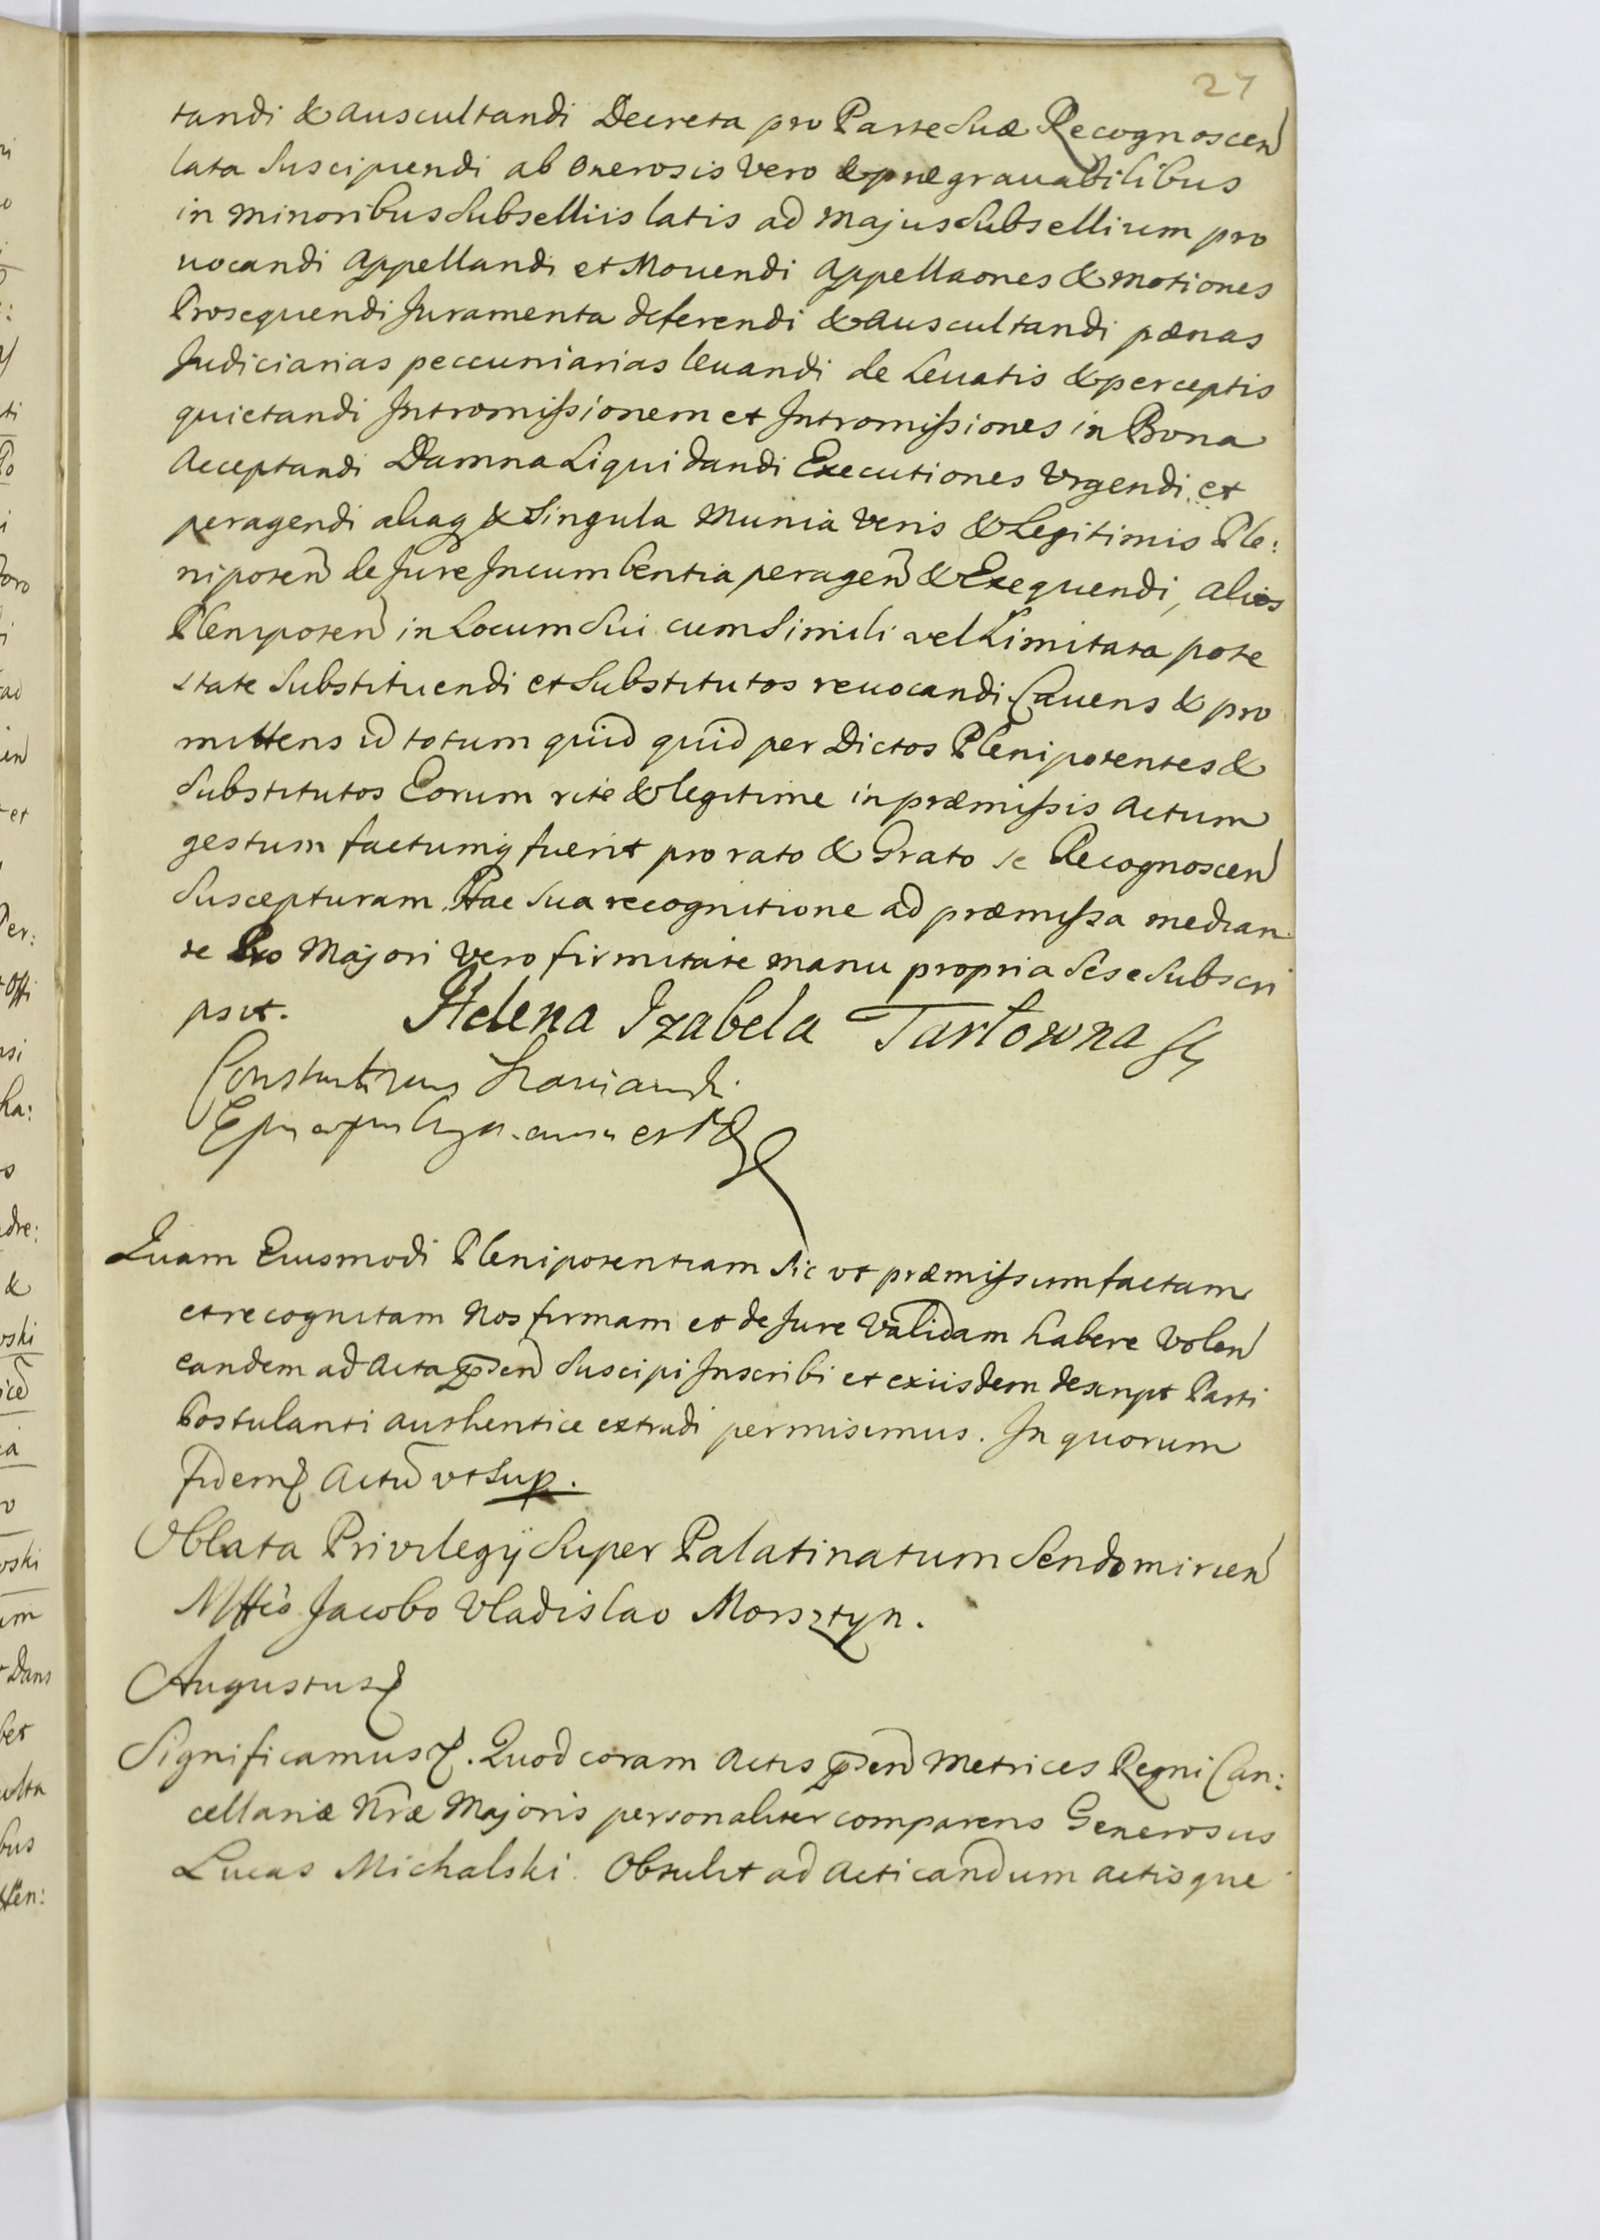 27
tandi & auscultandi Decreta pro Parte Suæ Recognoscen
lata Suscipiendi ab onerosis vero & prægrauabilibus
in minoribus Subselliis latis ad Majus Subsellium pro
uocandi Appellandi et Mouendi Appellaones & motiones
Prosequendi Juramenta deferendi & auscultandi pænas
Judiciarias peccuniarias leuandi de Leuatis & perceptis
quietandi Intromissionem et Intromissiones in Bona
Acceptandi Damna Liquidandi Executiones Vrgendi et
peragendi aliaq & Singula Munia Veris & Legitimis Ple:
nipoten de Jure Incumbentia peragen & Exequendi, alios
Plenipoten in Locum Sui cum Simili vel Limitata pote
state Substituendi et Substitutos reuocandi Cauens & pro
mittens id totum quid quid per Dictos Plenipotentes &
Substitutos Eorum rite & legitime in præmissis actum
gestum factumq fuerit pro rato & Grato se Recognoscen
Suscepturam Hac Sua recognitione ad præmissa median
te Pro Majori vero firmitate manu propria Sese Subscri
psit. Helena Izabela Tarłowna

Quam Eiusmodi Plenipotentiam Sic ut præmissum factam
et recognitam Nos firmam et de Jure Validam habere Volen
eandem ad Acta pden Suscipi Inscribi et exiisdem descript Parti
Postulanti authentice extradi permisimus. In quorum
fidem Actū vt Sup.
Oblata Privilegij Super Palatinatum Sendomirien
Mffco Jacobo Vladislao Morsztyn.
Augustus
Significamus. Quod coram Actis pden Metrices Regni Can:
cellariæ Nræ Majoris personaliter comparens Generosus
Lucas Michalski Obtulit ad Acticandum actisque